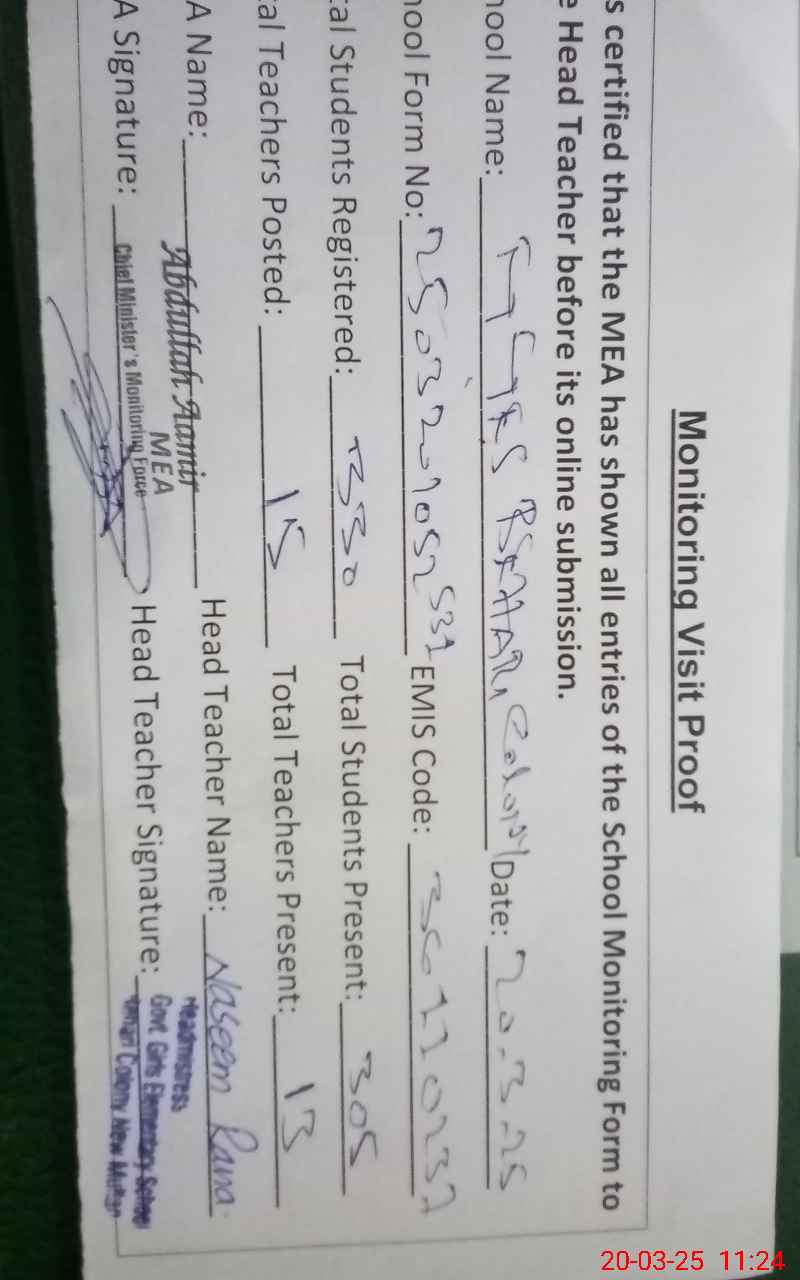 Monitoring Visit Proof
s certified that the MEA has shown all entries of the School Monitoring Form to
e Head Teacher before its online submission.
hool Name: Colony Date: 20.3.25
hool Form No: EMIS Code:
al Students Registered: 330 Total Students Present: 305
al Teachers Posted: 15 Total Teachers Present: 13
A Name: Abdullah Aamir Head Teacher Name: Naseem Rana
MEA
A Signature: Chief Minister's Monitoring Force Head Teacher Signature:
Headmistress
Govt. Girls Elementary School
Colony New Multan
20-03-25 11:24